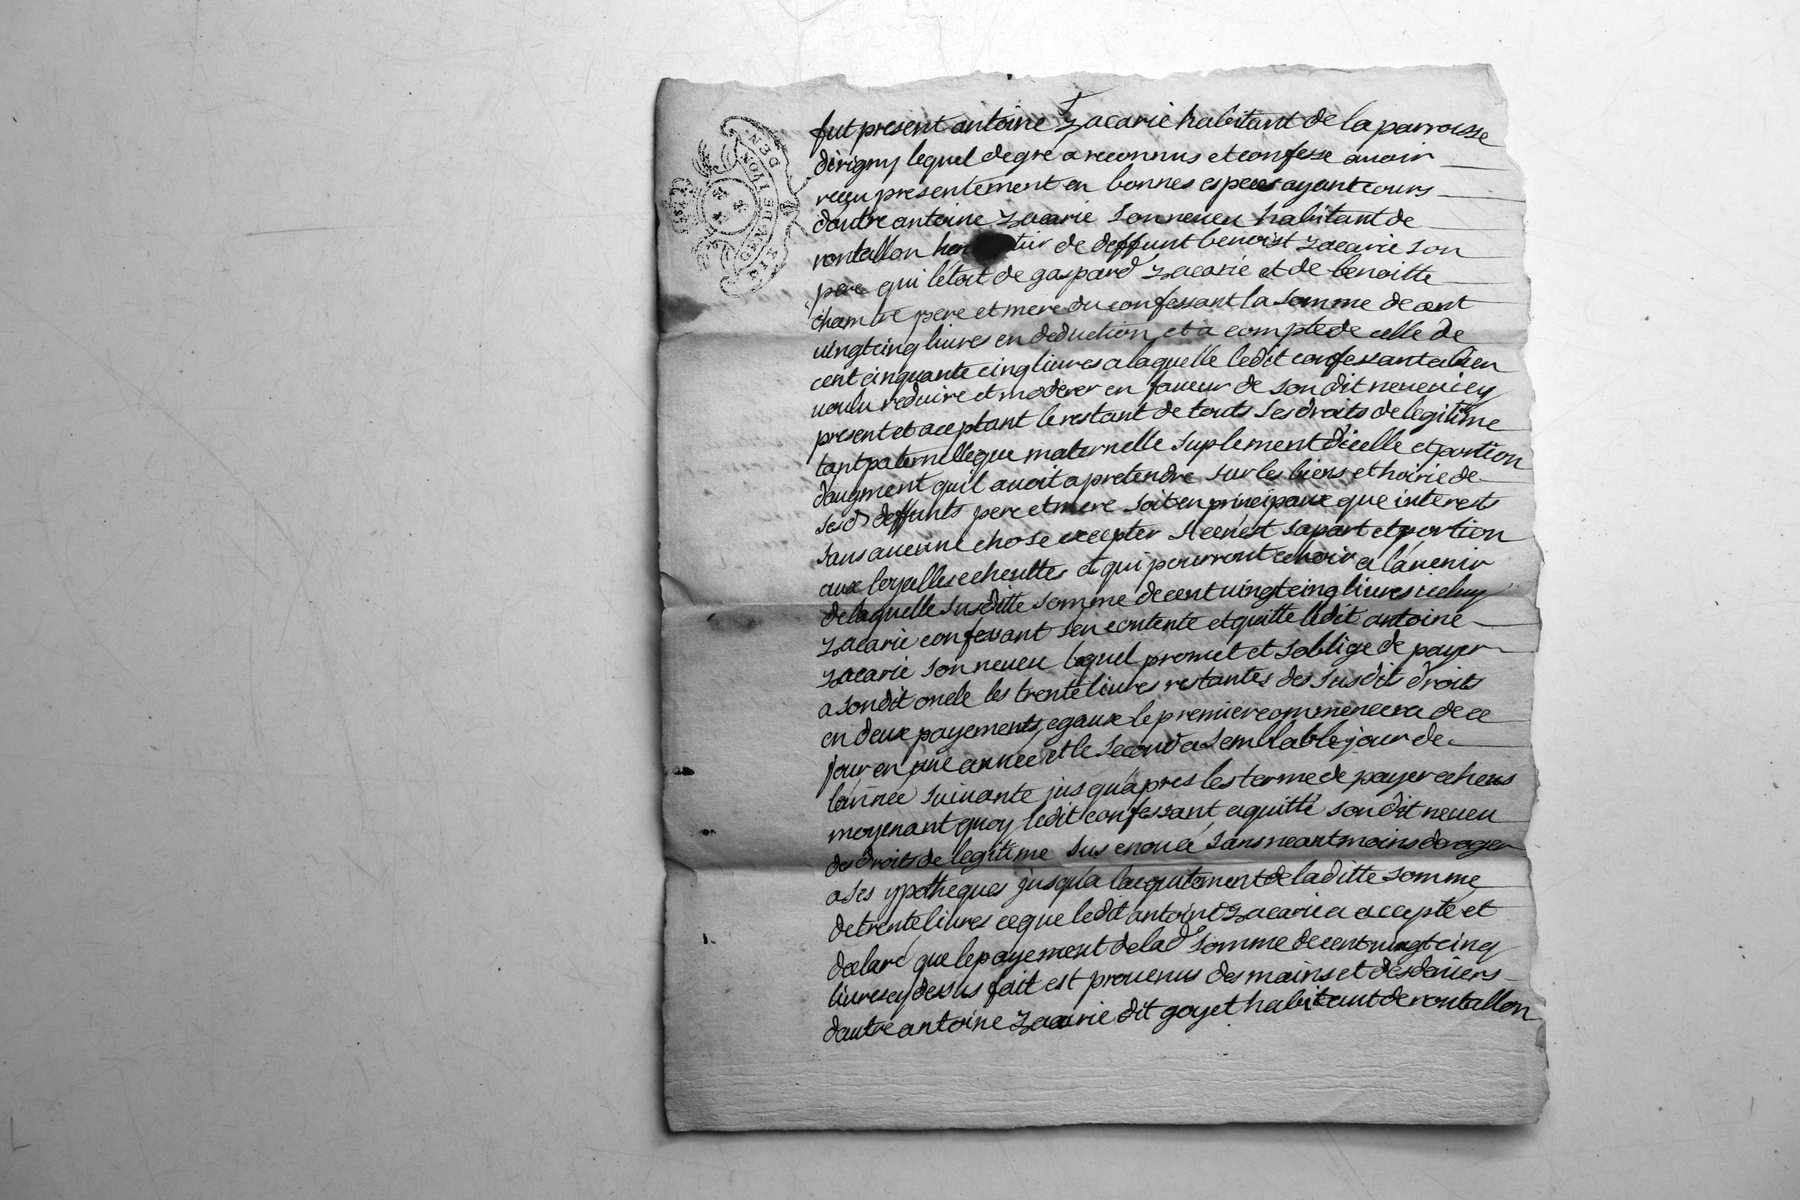 GENERALITE DE LYON DEN
fut present antoine Zacarie habitant de la parroisse
dirigny lequel de gre a reconnus et confesse auoir
recu presentement en bonnes especes ayant cours
dautre antoine Zacarie son neueu habitant de
rontallon de deffunt benoist Zacarie son
pere qui létoit de gaspard Zacarie et de benoitte
pere et mere du confessant la somme de cent
uingt cinq liures en deduction et a compte de celle de
cent cinquante cinq liures a laquelle ledit confessant a bien
uoulu reduire et moderer en faueur de son dit neueu icy
present et aceptant le restant de touts ses droits de legitime
tant paternelle que maternelle suplement dicelle et portion
daugment quil auoit a pretendre sur les biens et hoirie de
sesd deffunts pere et mere soit en principaux que interets
sans aucune chose excepter si ce nest sa part et portion
aux loyalles echeuttes et qui pourront echoir a lauenir
de laquelle susditte somme de cent uingt cinq liures iceluy
Zacarie confessant sen contente et quitte ledit antoine
Zacarie son neueu lequel promet et soblige de payer
a son dit oncle les trente liures restantes des susdits droits
en deux payements egaux le premier commencera de ce
jour en une année et le second a semblable jour de
lannée suiuante jusquapres les terme de payer echeus
moyenant quoy ledit confessant a quitté son dit neueu
des droits de legitime sus enoncé sans neantmoins deroger
a ses ypotheques jusqula laquitement de laditte somme
de trente liures ce que ledit antoine Zacarie a accepte et
declaré que le payement de lad somme de cent uingt cinq
liures cy dessus fait est prouenus des mains et des deniers
dautre antoine Zacarie dit goyet habitant de rontallon